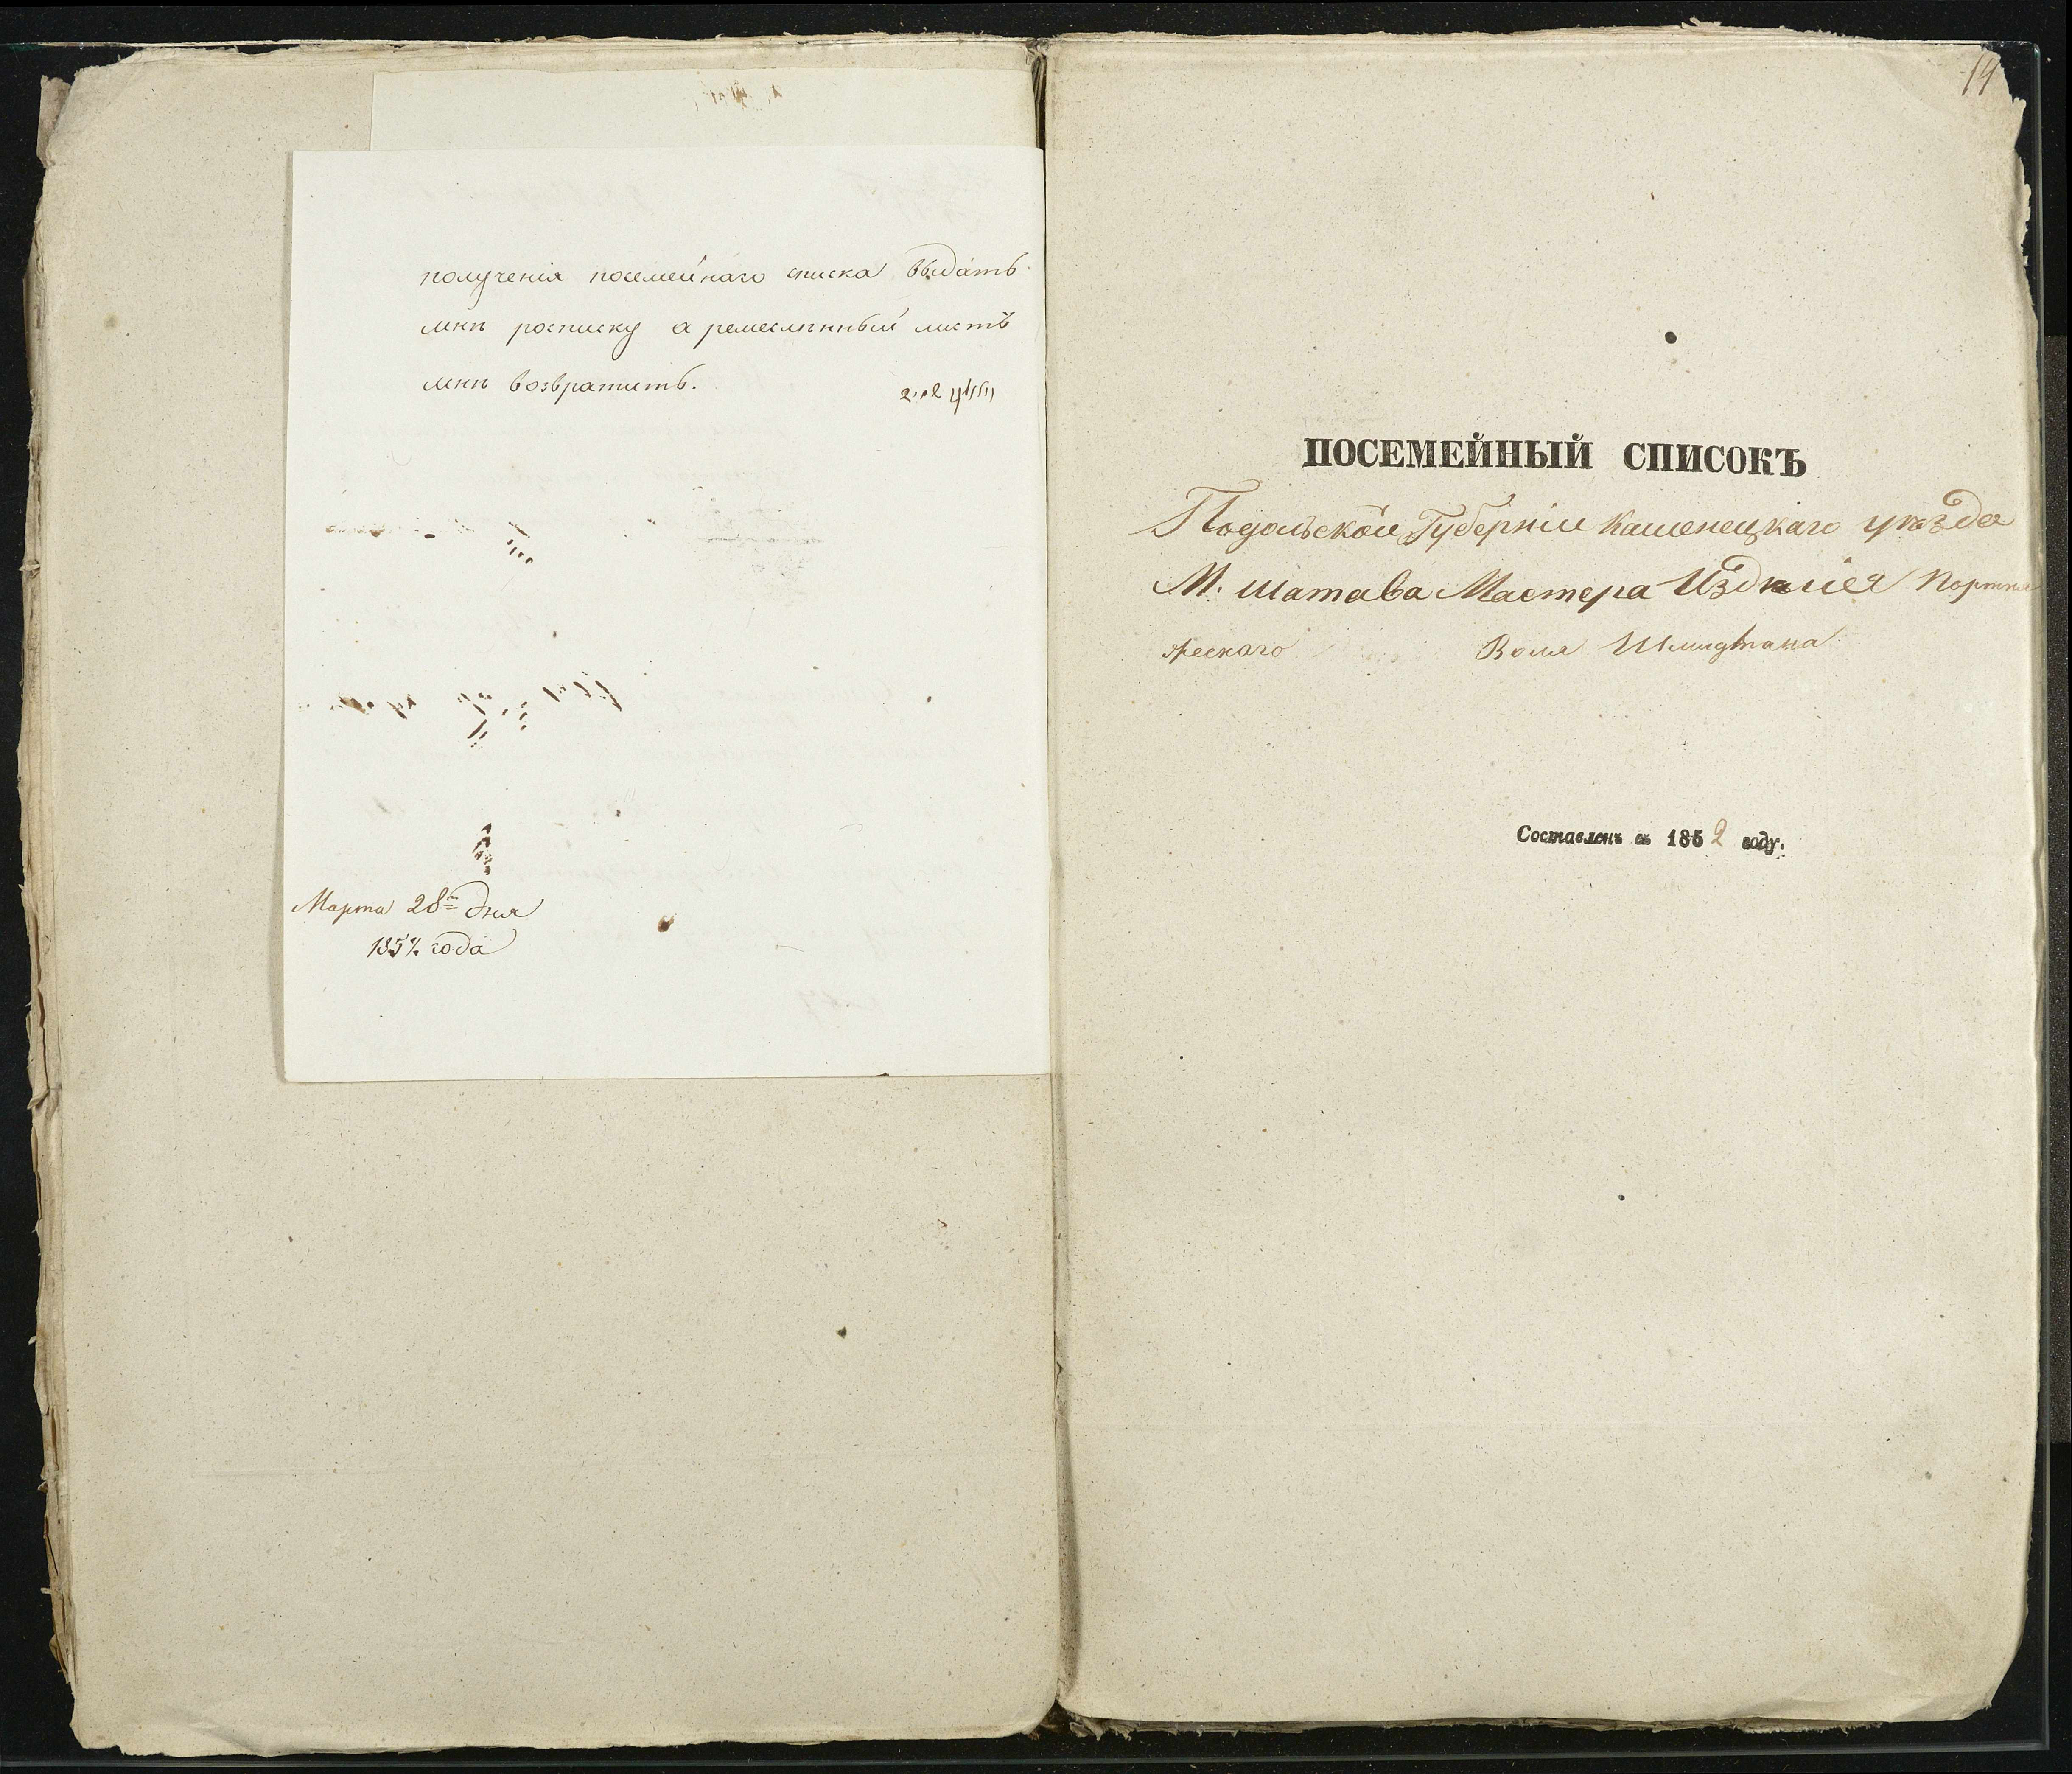 полученія посемейнаго списка выдать
мнѣ росписку а ремеслѣнный листъ
мнѣ возвратить.
Марта 28 го дня
1852 года
14
ПОСЕМЕЙНЫЙ СПИСОКЪ
Подольской Губерніи Каменецкаго уѣзда
М. Шатава Мастера Издѣлія Портня
жескаго Воля
Составленъ въ 1852 году.